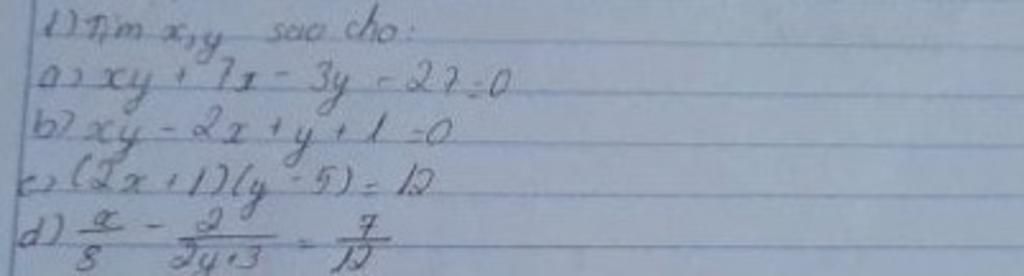 1) Tìm x, y sao cho:
a) xy + 7x - 3y - 27 = 0
b) xy - 2x + y + 1 = 0
c) (2x + 1)(y - 5) = 12
d) x/8 - 2/(2y+3) = 7/12